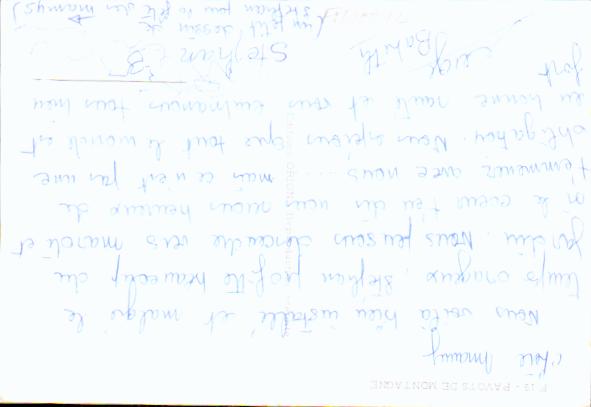 F 13 - PAVOTS DE MONTAGNE
chère mamy
Nous voilà bien installé et malgré le
temps orageux, Stéphan profite beaucoup du
jardin. Nous pensons descendre vers mardi et
on le coeur t'en dit nous heureux de
t'emmener avec nous .... mais ce n'est pas une
obligation. Nous espérons que tout le monde est
en bonne santé et vous embrassons tous bien
fort
Serge Babeth Stéphan
(un petit dessin de
Stéphan pour la fête des mamys)